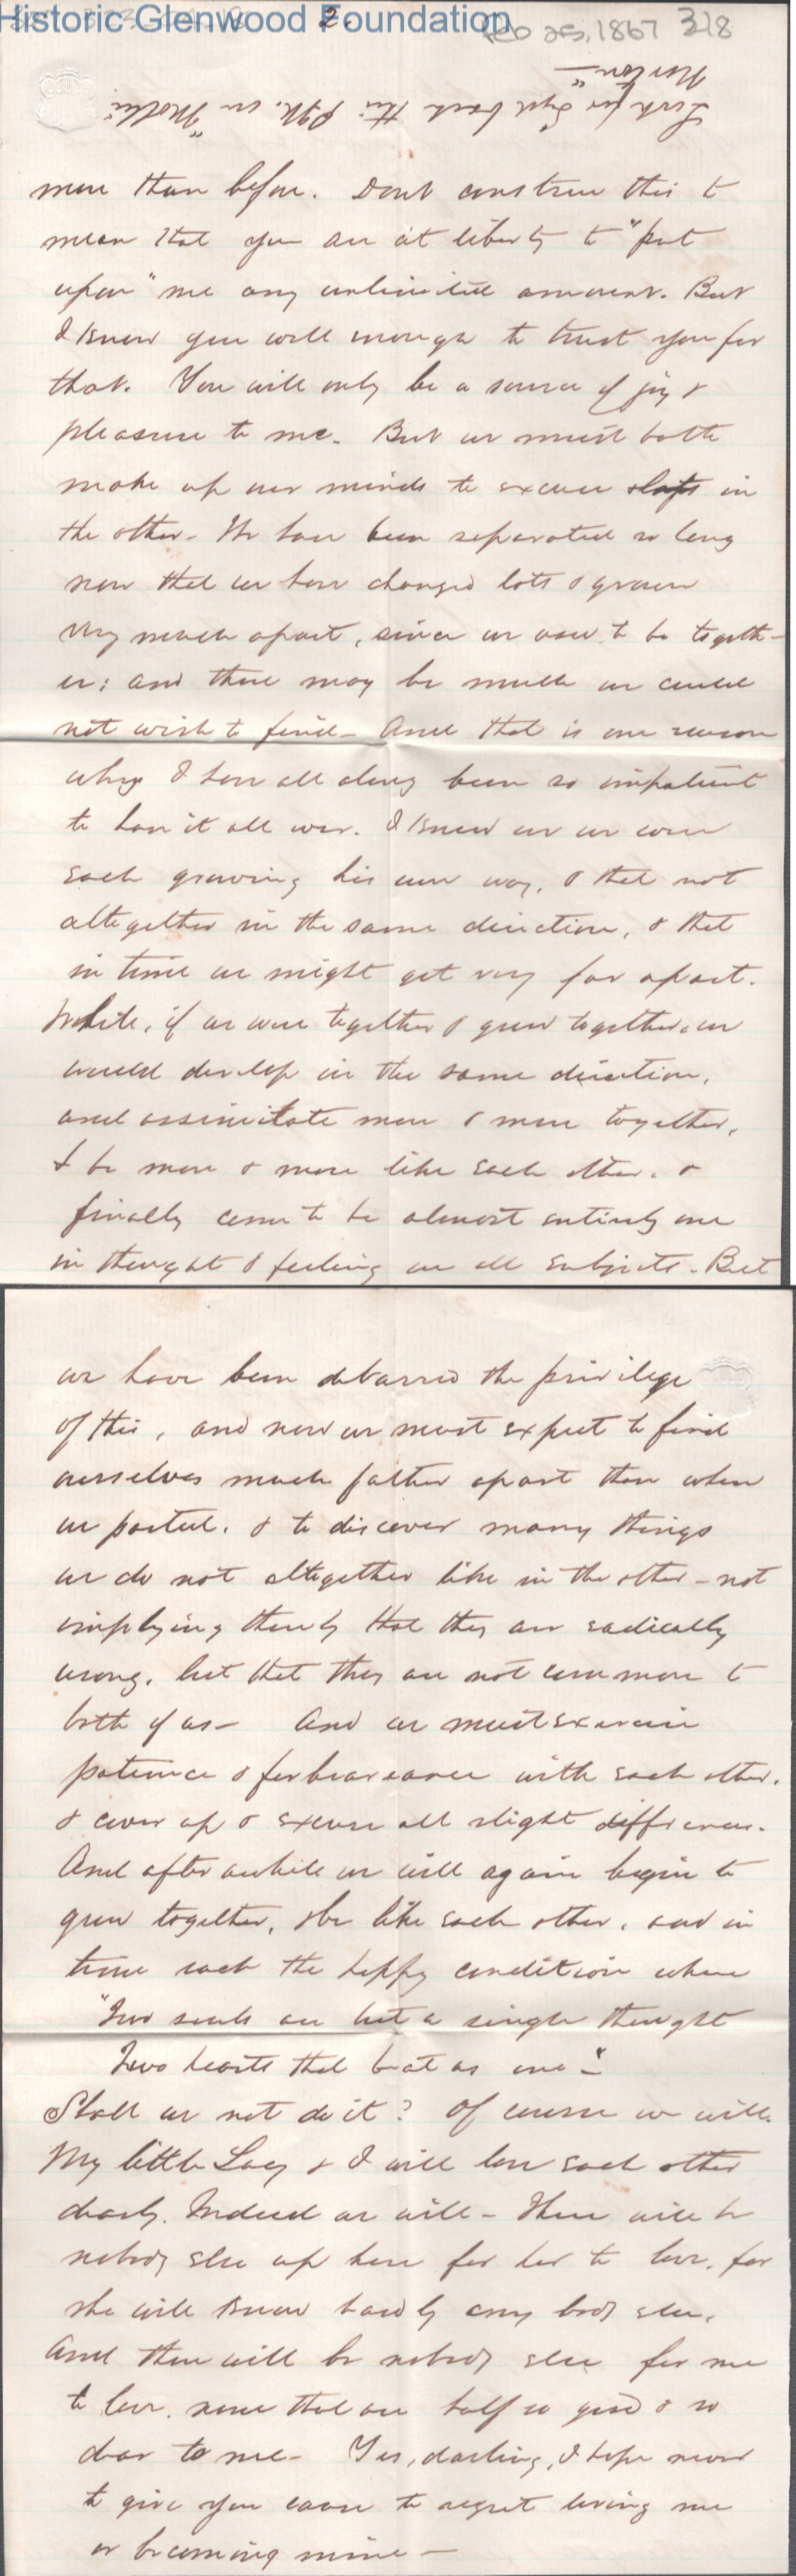 Historic Glenwood Foundation
2.
Feb 25, 1867 318
Look for Lyd back this P.M. on "Mollie
Norton"—
more than before. Dont construe this to
mean that you are at liberty to "put
upon" me any unlimited amount. But
I know you well enough to trust you for
that. You will only be a source of joy &
pleasure to me. But we must both
make up our minds to excuse slips in
the other— We have been separated so long
now that we have changed lots & grown
very much apart, since we used to be togeth-
er: and there may be much we could
not wish to find— And that is one reason
why I have all along been so impatient
to have it all over. I knew we were
each growing his own way, & that not
altogether in the same direction, & that
in time we might get very far apart.
While, if we were together & grew together, we
would develop in the same direction,
and assimilate more & more together,
& be more & more like each other. &
finally come to be almost entirely one
in thought & feeling on all subjects. But
we have been debarred the privilege
of this, and now we must expect to find
ourselves much father apart than when
we parted. & to discover many things
we do not altogether like in the other—not
implying thereby that they are radically
wrong, but that they are not common to
both of us— And we must exercise
patience & forbearance with each other.
& cover up & excuse all slight differences.
And after awhile we will again begin to
grow together, & be like each other, and in
time reach the happy condition where
"Two souls are but a single thought
Two hearts that beat as one"—
Shall we not do it? Of course we will.
My little Lucy & I will love each other
dearly. Indeed we will— There will be
nobody else up here for her to love, for
she will know hardly any body else.
And there will be nobody else for me
to love. none that are half so good & so
dear to me— Yes, darling, I hope never
to give you cause to regret loving me
or becoming mine—